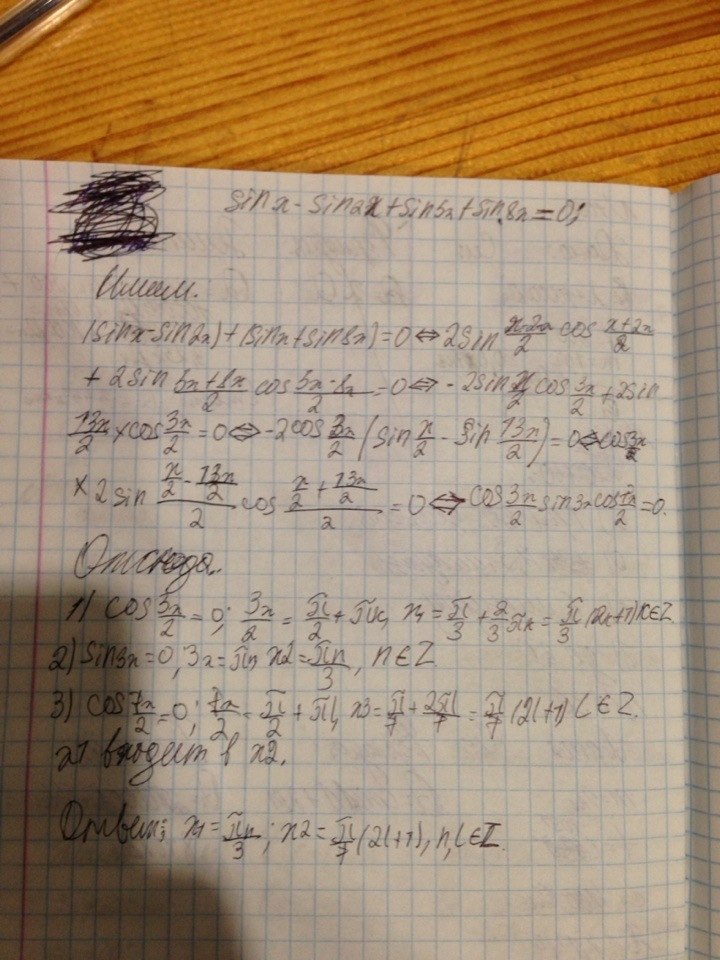 sin x - sin2x + sin5x + sin8x = 0;
Имеем.
(sinx - sin2x) + (sinx + sin8x) = 0 ⇔ 2sin (x-2x)/2 cos (x+2x)/2
+ 2sin (5x+8x)/2 cos (5x-8x)/2 = 0 ⇔ -2sin x/2 cos 3x/2 + 2sin
13x/2 × cos 3x/2 = 0 ⇔ -2cos 3x/2 (sin x/2 - sin 13x/2) = 0 ⇔ cos 3x/2
× 2sin (x/2 - 13x/2)/2 cos (x/2 + 13x/2)/2 = 0 ⇔ cos 3x/2 sin3x cos 7x/2 = 0.
Отсюда.
1) cos 3x/2 = 0; 3x/2 = π/2 + πk, x1 = π/3 + 2/3 πk = π/3 (2k+1) k∈Z
2) sin3x = 0; 3x = πn x2 = πn/3, n∈Z
3) cos 7x/2 = 0; 7x/2 = π/2 + πl, x3 = π/7 + 2πl/7 = π/7 (2l+1) l∈Z.
x1 входит в x2.
Ответ: x1 = πn/3; x2 = π/7 (2l+1), n, l∈Z